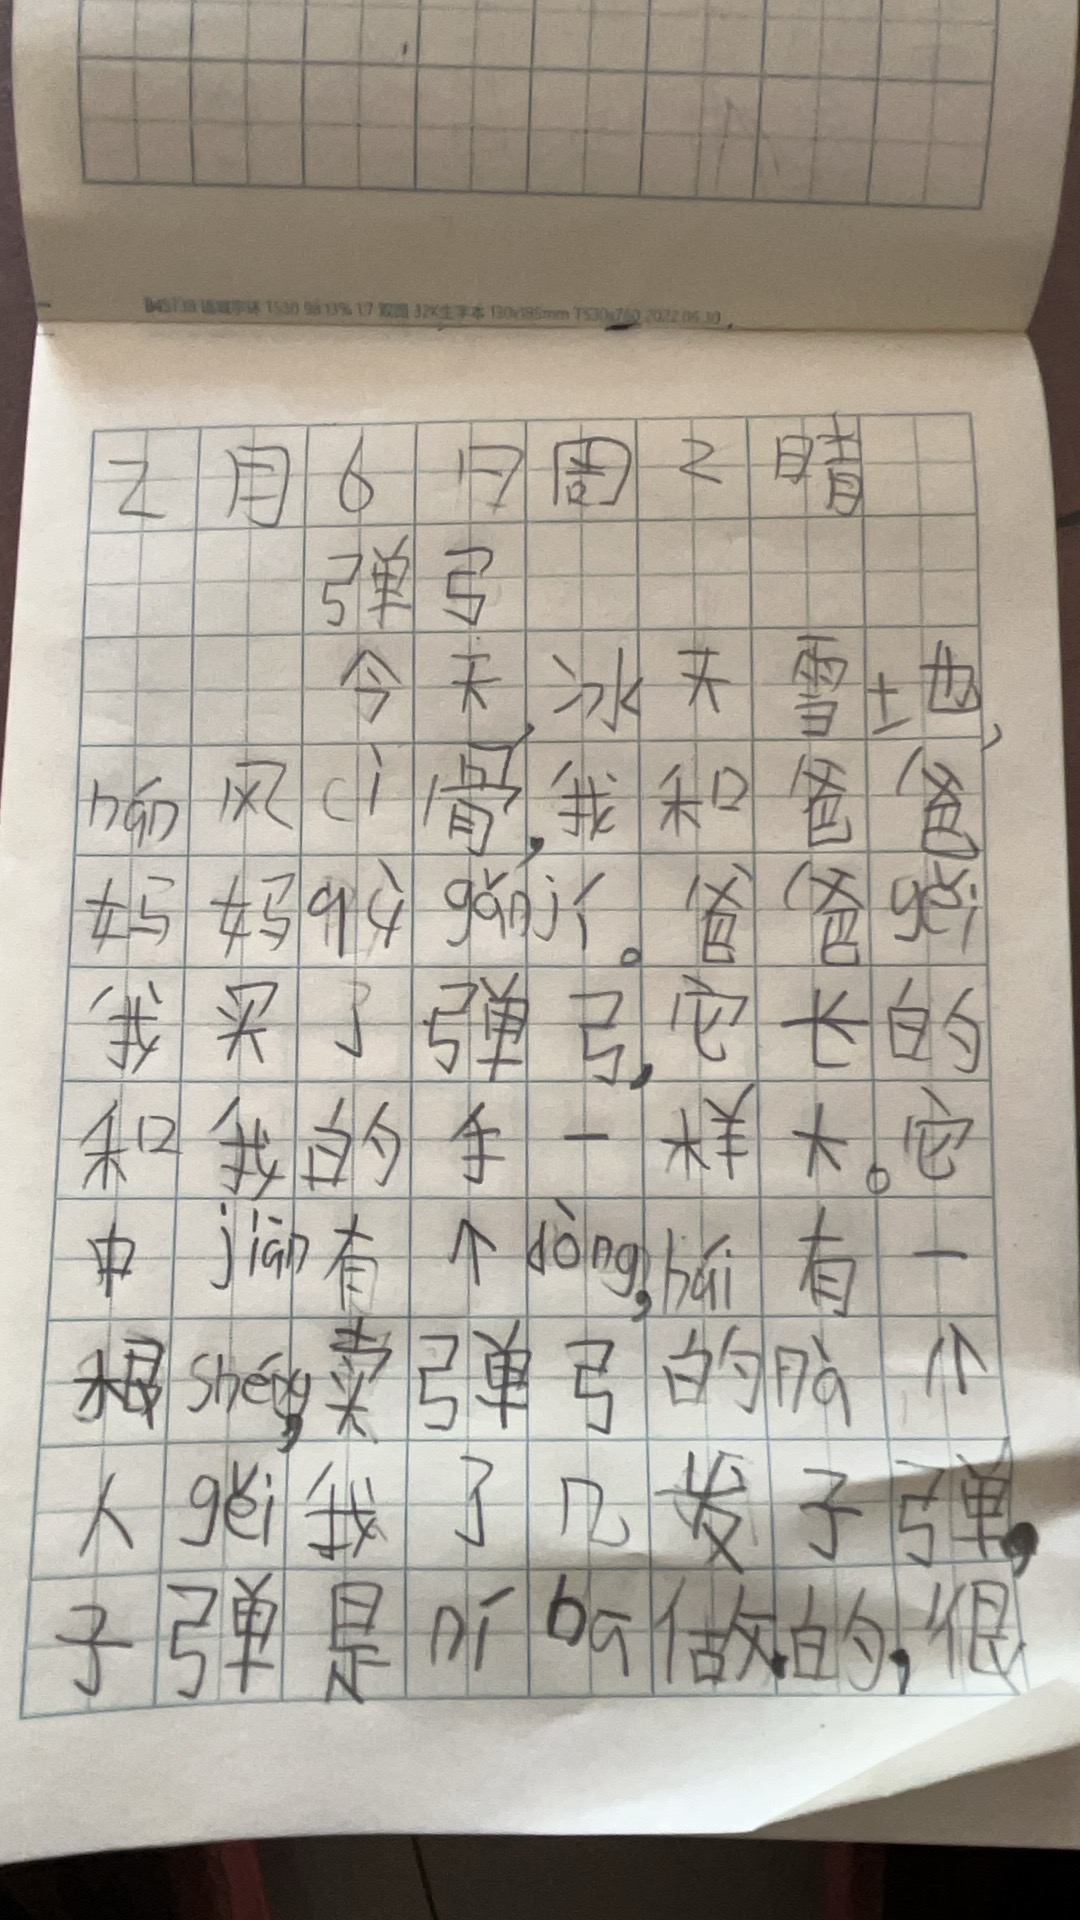 2月6日周2晴
弹弓
今天,冰天雪地,
hán风cì骨,我和爸爸
妈妈qù gǎn jí。爸爸gěi
我买了弹弓,它长的
和我的手一样大。它
中jiān有个dòng,hái有一
根shéng,卖弹弓的nà个
人gěi我了几发子弹,
子弹是ní ba做的,很